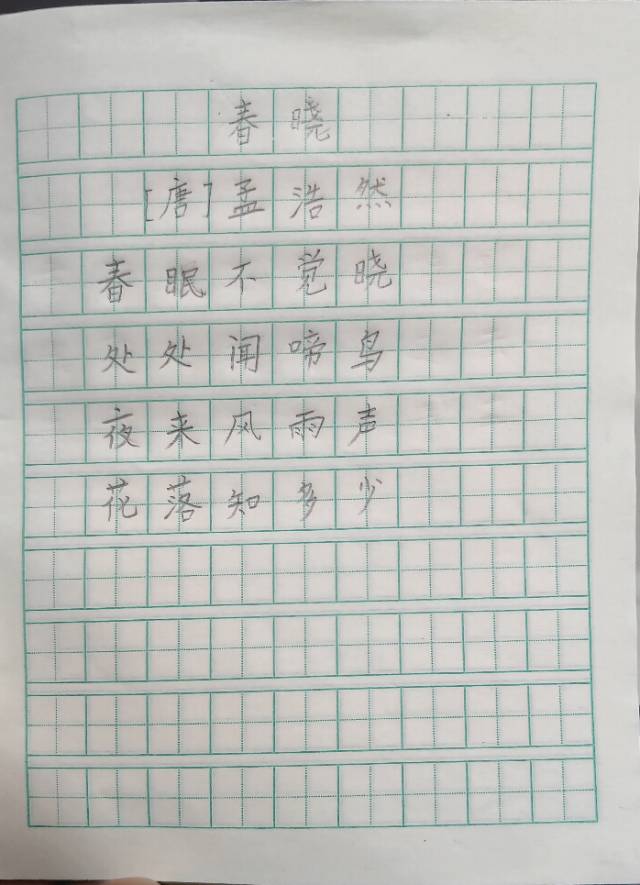 春晓
[唐]孟浩然
春眠不觉晓
处处闻啼鸟
夜来风雨声
花落知多少